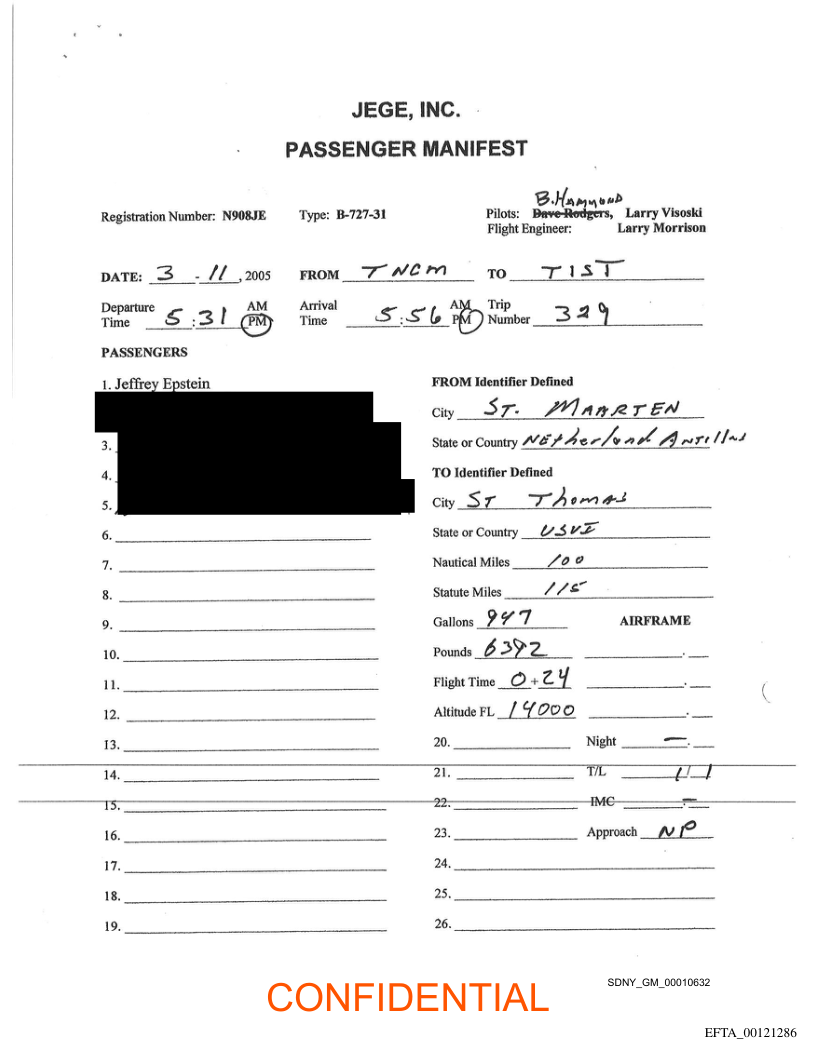 JEGE, INC.
PASSENGER MANIFEST
B. HAMMOND
Registration Number: N908JE Type: B-727-31 Pilots: Dave Rodgers, Larry Visoski
Flight Engineer: Larry Morrison
DATE: 3 - 11, 2005 FROM TNCM TO TIST
Departure Time 5:31 AM PM Arrival Time 5:56 AM PM Trip Number 329
PASSENGERS
1. Jeffrey Epstein
3.
4.
5.
6.
7.
8.
9.
10.
11.
12.
13.
14.
15.
16.
17.
18.
19.
FROM Identifier Defined
City ST. MAARTEN
State or Country NEtherland Antilles
TO Identifier Defined
City ST Thomas
State or Country USVI
Nautical Miles 100
Statute Miles 115
Gallons 947 AIRFRAME
Pounds 6392
Flight Time 0+24
Altitude FL 14000
20. Night —
21. T/L 1/1
22. IMC —
23. Approach NP
24.
25.
26.
CONFIDENTIAL
SDNY_GM_00010632
EFTA_00121286